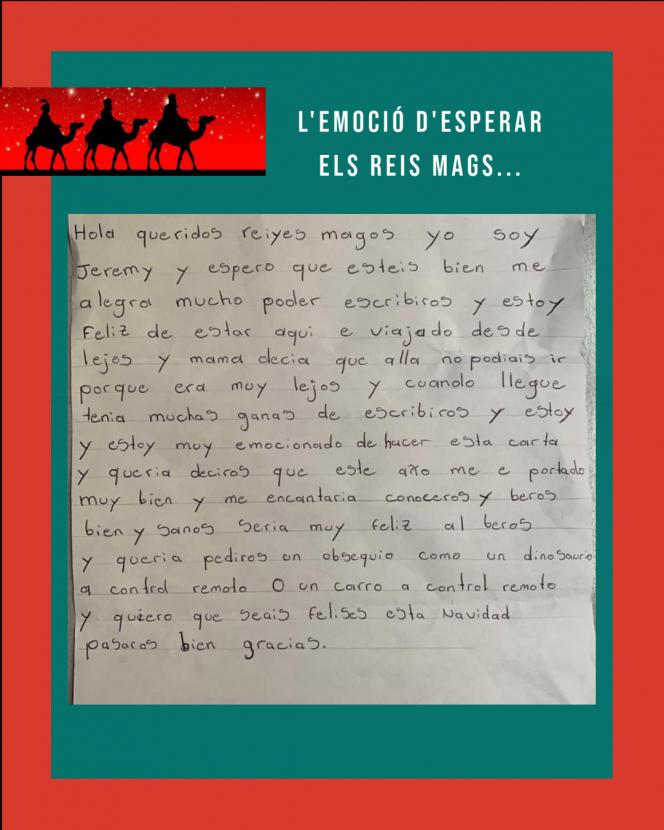 L'EMOCIÓ D'ESPERAR
ELS REIS MAGS...
Hola queridos reiyes magos yo soy
Jeremy y espero que esteis bien me
alegra mucho poder escribiros y estoy
Feliz de estar aqui e viajado desde
lejos y mama decia que alla no podiais ir
porque era muy lejos y cuando llegue
tenia muchas ganas de escribiros y estoy
y estoy muy emocionado de hacer esta carta
y queria deciros que este año me e portado
muy bien y me encantaria conoceros y beros
bien y sanos seria muy feliz al beros
y queria pediros un obsequio como un dinosaurio
a control remoto O un carro a control remoto
y quiero que seais felises esta Navidad
pasaros bien gracias.